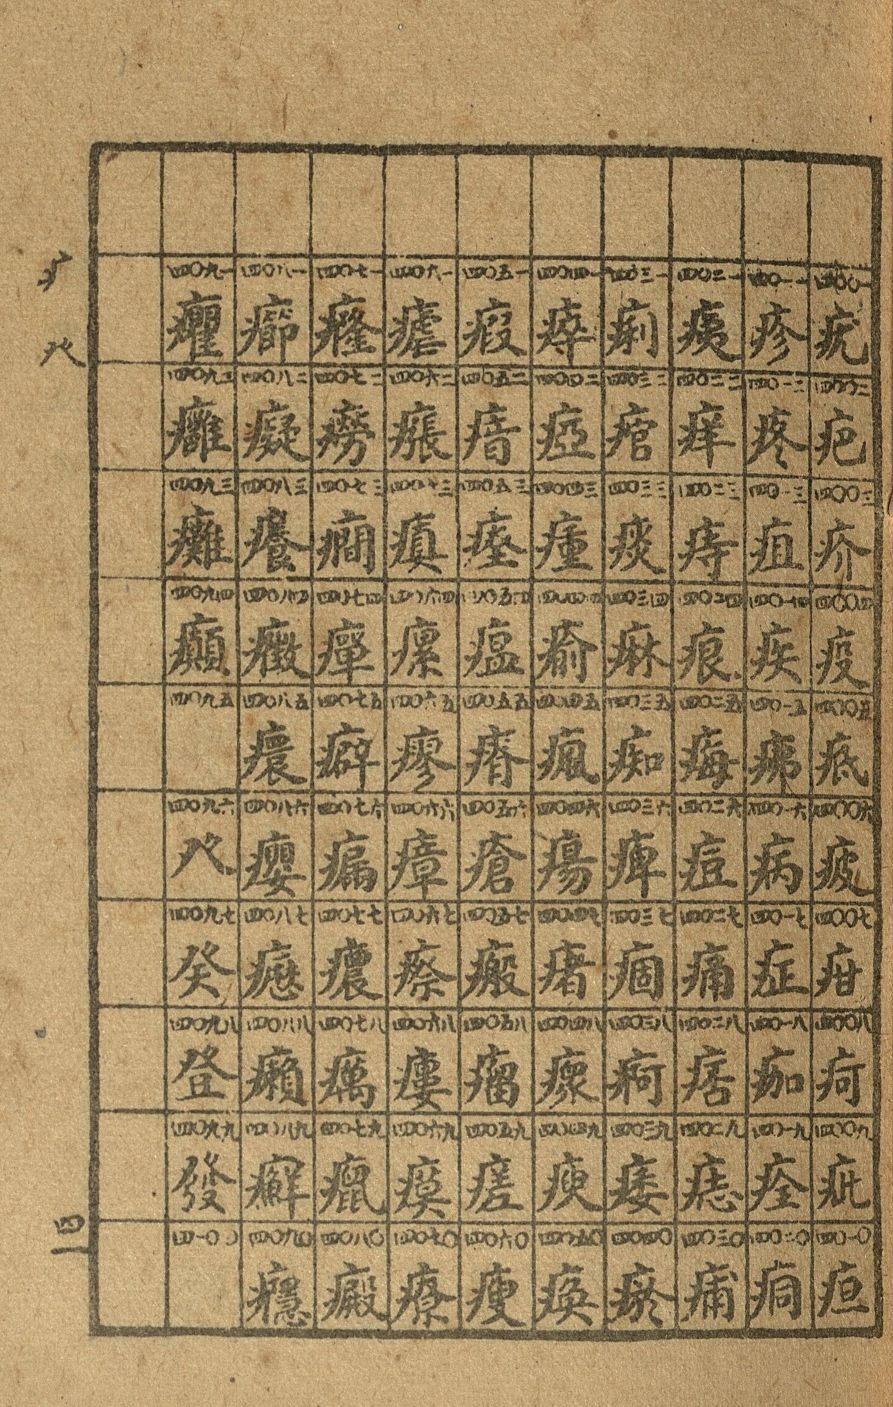 疒 癶
四一
四〇〇一 疣 四〇〇二 疤 四〇〇三 疥 四〇〇四 疫 四〇〇五 疷 四〇〇六 疲 四〇〇七 疳 四〇〇八 疴 四〇〇九 疵 四〇一〇 疸
四〇一一 疹 四〇一二 疼 四〇一三 疽 四〇一四 疾 四〇一五 疿 四〇一六 病 四〇一七 症 四〇一八 痂 四〇一九 痊 四〇二〇 痌
四〇二一 痍 四〇二二 痒 四〇二三 痔 四〇二四 痕 四〇二五 痗 四〇二六 痘 四〇二七 痛 四〇二八 痞 四〇二九 痣 四〇三〇 痡
四〇三一 痢 四〇三二 痯 四〇三三 痰 四〇三四 痳 四〇三五 痴 四〇三六 痺 四〇三七 痼 四〇三八 痾 四〇三九 痿 四〇四〇 瘀
四〇四一 瘁 四〇四二 瘂 四〇四三 瘇 四〇四四 瘉 四〇四五 瘋 四〇四六 瘍 四〇四七 瘏 四〇四八 瘝 四〇四九 瘐 四〇五〇 瘓
四〇五一 瘕 四〇五二 瘖 四〇五三 瘞 四〇五四 瘟 四〇五五 瘠 四〇五六 瘡 四〇五七 瘢 四〇五八 瘤 四〇五九 瘥 四〇六〇 瘦
四〇六一 瘧 四〇六二 瘬 四〇六三 瘨 四〇六四 瘰 四〇六五 瘳 四〇六六 瘴 四〇六七 瘵 四〇六八 瘻 四〇六九 瘼 四〇七〇 療
四〇七一 癃 四〇七二 癆 四〇七三 癇 四〇七四 癉 四〇七五 癖 四〇七六 四〇七七 癑 四〇七八 癘 四〇七九 癙 四〇八〇 癜
四〇八一 癤 四〇八二 癡 四〇八三 癢 四〇八四 癥 四〇八五 癏 四〇八六 癭 四〇八七 四〇八八 癩 四〇八九 癬 四〇九〇 癮
四〇九一 癯 四〇九二 癰 四〇九三 癱 四〇九四 癲 四〇九五 四〇九六 癶 四〇九七 癸 四〇九八 登 四〇九九 發 四一〇〇